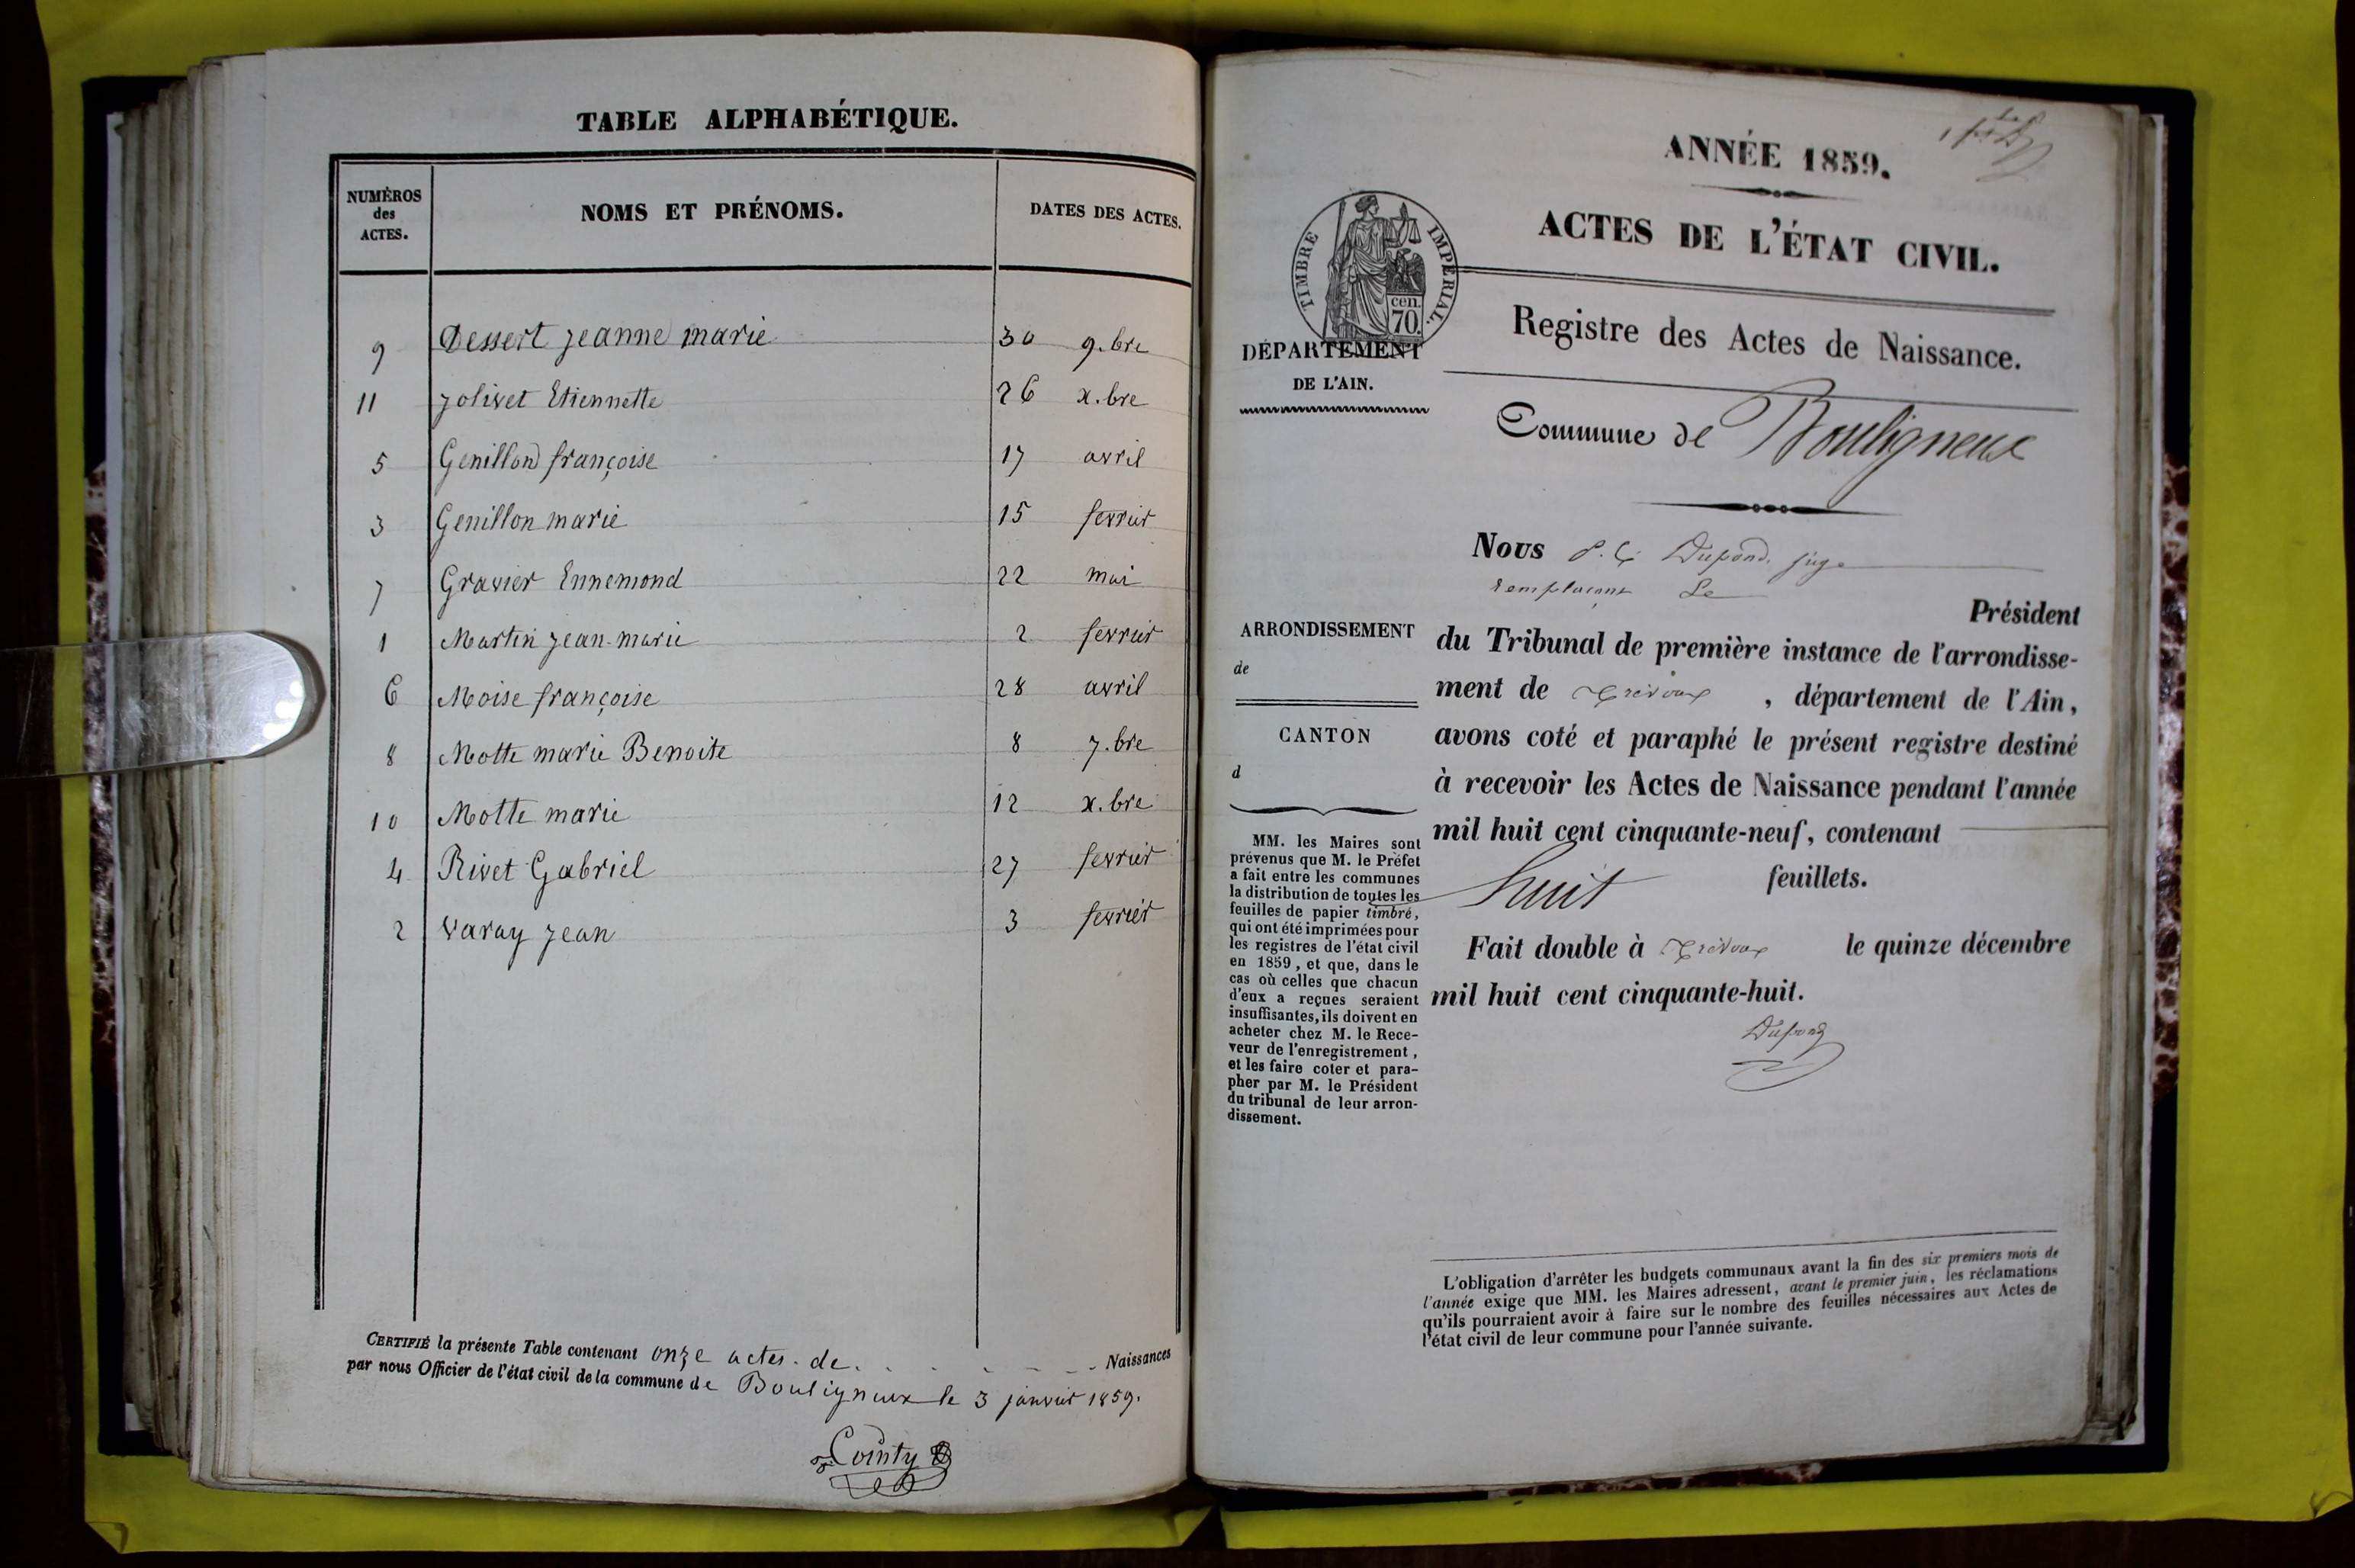 TABLE ALPHABÉTIQUE.
NUMÉROS des ACTES. NOMS ET PRÉNOMS. DATES DES ACTES.
9 Dessert Jeanne marie 30 9.bre
11 Jolivet Etiennette 26 x.bre
5 Genillon françoise 17 avril
3 Genillon marie 15 fevrier
7 Gravier Ennemond 22 mai
1 Martin Jean-marie 2 fevrier
6 Moise françoise 28 avril
8 Motte marie Benoite 8 7.bre
10 Motte marie 12 x.bre
4 Rivet Gabriel 27 fevrier
2 Varay Jean 3 fevrier
CERTIFIÉ la présente Table contenant onze actes de Naissances
par nous Officier de l'état civil de la commune de Bouligneux le 3 janvier 1859.
Cointy
ANNÉE 1859.
ACTES DE L'ÉTAT CIVIL.
TIMBRE IMPÉRIAL.
cen.
70.
Registre des Actes de Naissance.
DÉPARTEMENT
DE L'AIN.
Commune de Bouligneux
Nous Dupond, juge
remplaçant Le
Président
du Tribunal de première instance de l'arrondisse-
ment de Trévoux, département de l'Ain,
avons coté et paraphé le présent registre destiné
à recevoir les Actes de Naissance pendant l'année
mil huit cent cinquante-neuf, contenant
huit feuillets.
Fait double à Trévoux le quinze décembre
mil huit cent cinquante-huit.
Dupond
ARRONDISSEMENT
de
CANTON
d
MM. les Maires sont
prévenus que M. le Préfet
a fait entre les communes
la distribution de toutes les
feuilles de papier timbré,
qui ont été imprimées pour
les registres de l'état civil
en 1859, et que, dans le
cas où celles que chacun
d'eux a reçues seraient
insuffisantes, ils doivent en
acheter chez M. le Rece-
veur de l'enregistrement,
et les faire coter et para-
pher par M. le Président
du tribunal de leur arron-
dissement.
L'obligation d'arrêter les budgets communaux avant la fin des six premiers mois de
l'année exige que MM. les Maires adressent, avant le premier juin, les réclamations
qu'ils pourraient avoir à faire sur le nombre des feuilles nécessaires aux Actes de
l'état civil de leur commune pour l'année suivante.